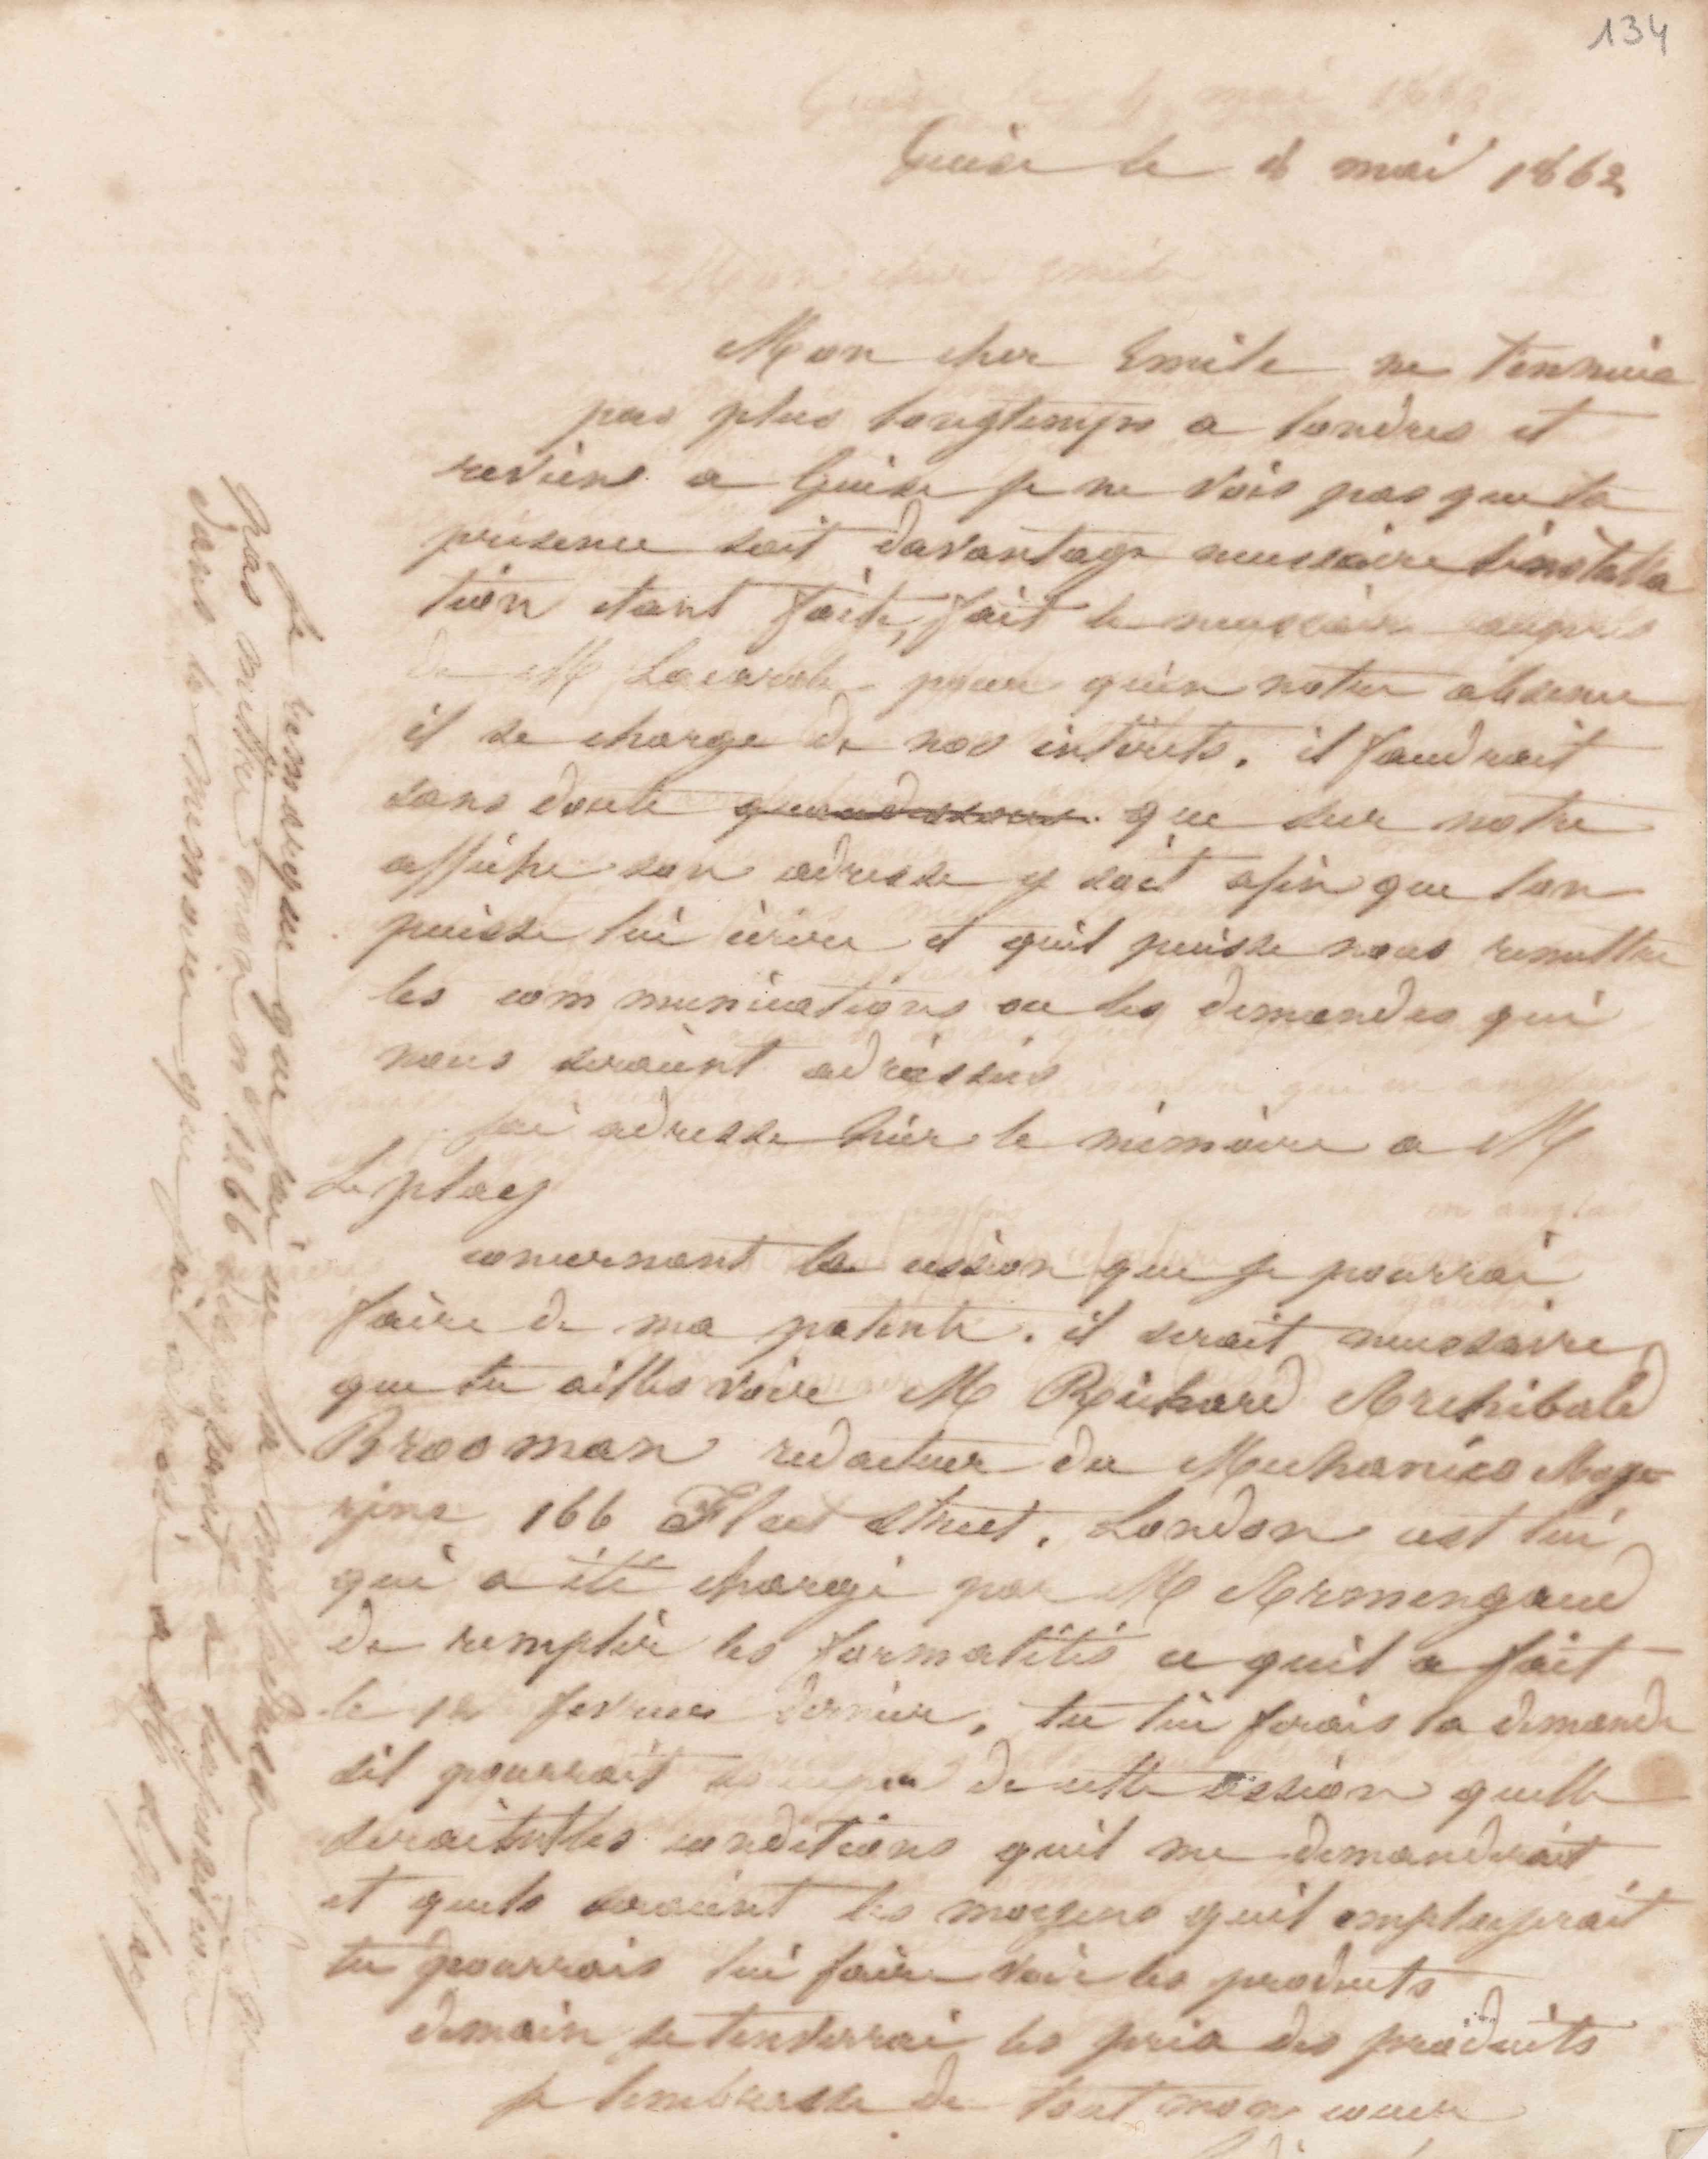 134
Guise le 4 mai 1862
Mon cher Emile ne t'ennuie
pas plus longtemps a londres et
reviens a Guise je ne vois pas que ta
présence soit davantage necessaire l'installa
tion etant faite, fait le necessaire auprès
de M pour qu'en notre absence
il se charge de nos intérets. il faudrait
sans doute que sur notre
affiche son adresse y soit afin que lon
puisse lui écrire et quil puisse nous remettre
les communications ou les demandes qui
nous seraient adréssées
jai adresse hier le mémoire a M
Leplay
concernant la cession que je pourrai
faire de ma patente. il serait necessaire
que tu ailles voir M Richard Archibald
Brooman redacteur du Mechanics Maga
zine 166 Fleet street. London cest lui
qui a été chargé par M Armengaud
de remplir les formalités ce quil a fait
le 12 fevrier dernier. tu lui ferais la demande
sil pourrait de cette cession quelle
seraient les conditions quil me demanderait
et quels seraient les moyens quil employerait
tu pourrais lui faire voir les produits
demain je tenverrai les prix des produits
je tembrasse de tout mon coeur
Je remarque que jai eu la
pas mettre mon n° 1266 dexposant a lexposition
dans le mémoire que jai adressé a M Leplay